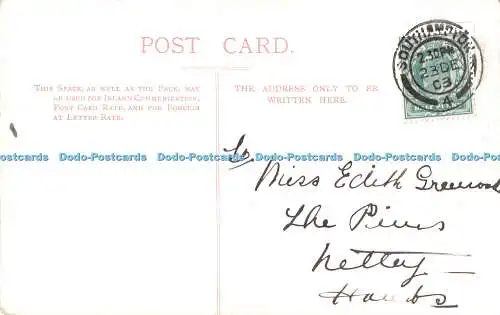 POST CARD.
THIS SPACE, AS WELL AS THE BACK, MAY
BE USED FOR INLAND COMMUNICATION,
POST CARD RATE, AND FOR FOREIGN
AT LETTER RATE.
THE ADDRESS ONLY TO BE
WRITTEN HERE.
SOUTHAMPTON
2.30 PM
23 DE
03
Dodo-Postcards Dodo-Postcards Dodo-Postcards Dodo-Postcards Dodo-Postcards Dodo-Postcards
To
Miss Edith Greenwood
The Pines
Netley
Hants